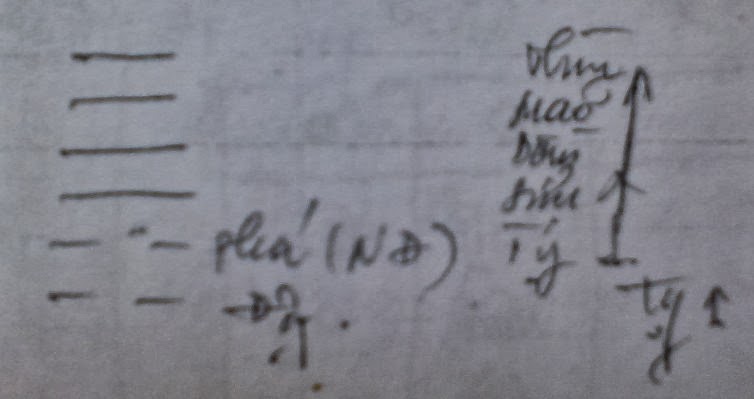 Thìn
Mão
Dần
Sửu
Tý
phá (NĐ)
Tý